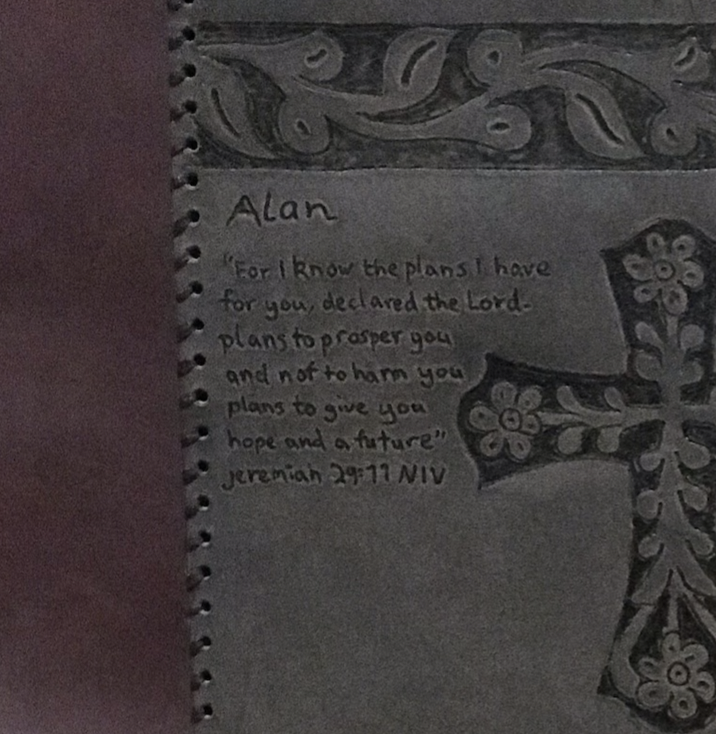 Alan
"For I know the plans I have
for you, declared the Lord-
plans to prosper you
and not to harm you
plans to give you
hope and a future"
jeremiah 29:11 NIV